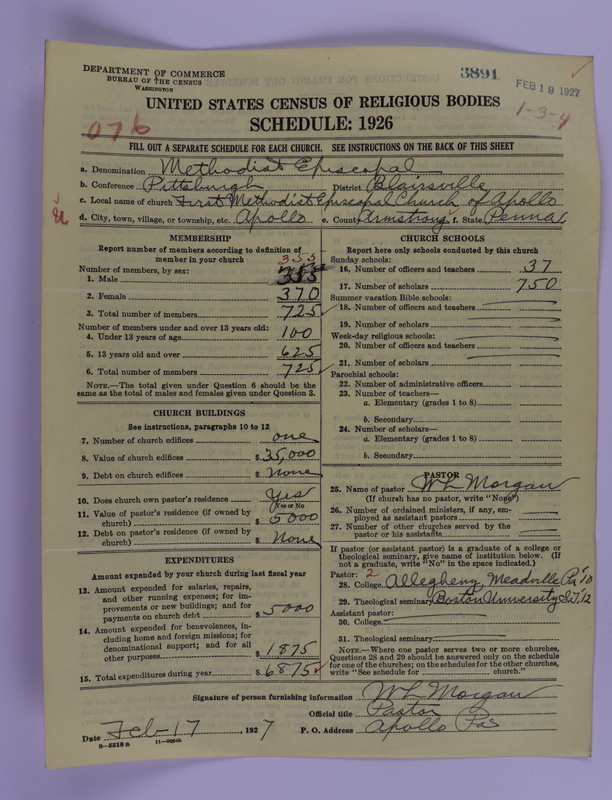 DEPARTMENT OF COMMERCE
BUREAU OF THE CENSUS
WASHINGTON
3891
FEB 19 1927
1-3-4
UNITED STATES CENSUS OF RELIGIOUS BODIES
SCHEDULE: 1926
076
FILL OUT A SEPARATE SCHEDULE FOR EACH CHURCH. SEE INSTRUCTIONS ON THE BACK OF THIS SHEET
a. Denomination Methodist Episcopal
b. Conference Pittsburgh District Blairsville
c. Local name of church First Methodist Episcopal Church of Apollo
d. City, town, village, or township, etc. Apollo e. County Armstrong f. State Penna.
MEMBERSHIP
Report number of members according to definition of
member in your church
Number of members, by sex: 355
1. Male 355
2. Female 370
3. Total number of members 725
Number of members under and over 13 years old:
4. Under 13 years of age 100
5. 13 years old and over 625
6. Total number of members 725
NOTE.—The total given under Question 6 should be
same as the total of males and females given under Question 3.
CHURCH BUILDINGS
See instructions, paragraphs 10 to 12
7. Number of church edifices one
8. Value of church edifices $35,000
9. Debt on church edifices $ None
10. Does church own pastor's residence Yes
(Yes or No)
11. Value of pastor's residence (if owned by
church) $5000
12. Debt on pastor's residence (if owned by
church) $ None
EXPENDITURES
Amount expended by your church during last fiscal year
13. Amount expended for salaries, repairs,
and other running expenses; for im-
provements or new buildings; and for
payments on church debt $5000
14. Amount expended for benevolences, in-
cluding home and foreign missions; for
denominational support; and for all
other purposes $1875
15. Total expenditures during year $6875
CHURCH SCHOOLS
Report here only schools conducted by this church
Sunday schools:
16. Number of officers and teachers 37
17. Number of scholars 750
Summer vacation Bible schools:
18. Number of officers and teachers
19. Number of scholars
Week-day religious schools:
20. Number of officers and teachers
21. Number of scholars
Parochial schools:
22. Number of administrative officers
23. Number of teachers—
a. Elementary (grades 1 to 8)
b. Secondary
24. Number of scholars—
a. Elementary (grades 1 to 8)
b. Secondary
PASTOR
25. Name of pastor W L Morgan
(If church has no pastor, write "None")
26. Number of ordained ministers, if any, em-
ployed as assistant pastors
27. Number of other churches served by the
pastor or his assistants
If pastor (or assistant pastor) is a graduate of a college or
theological seminary, give name of institution below. (If
not a graduate, write "No" in the space indicated.)
Pastor: 2
28. College Allegheny, Meadville Pa '10
29. Theological seminary Boston University S.T. '12
Assistant pastor:
30. College
31. Theological seminary
NOTE.—Where one pastor serves two or more churches,
Questions 28 and 29 should be answered only on the schedule
for one of the churches; on the schedules for the other churches,
write "See schedule for church."
Signature of person furnishing information W L Morgan
Official title Pastor
Date Feb-17, 1927 P. O. Address Apollo Pa
8-5518 a